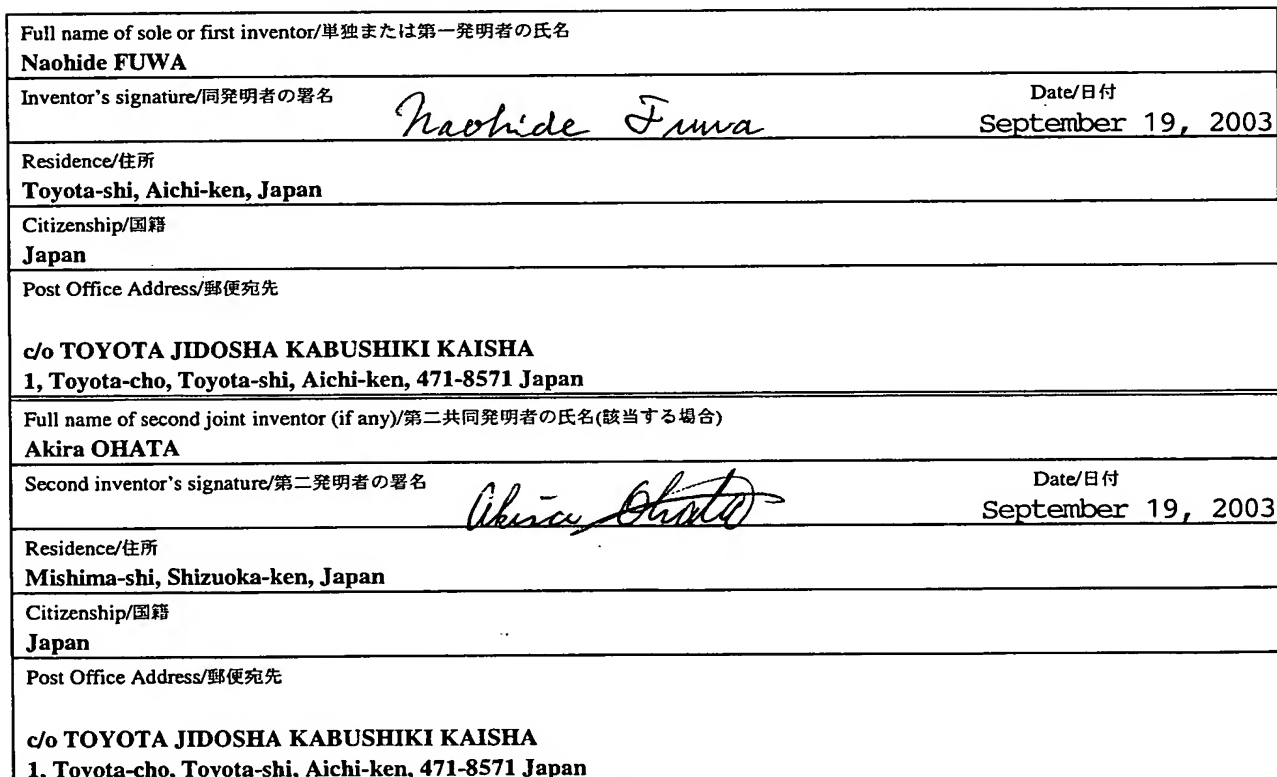 Full name of sole or first inventor/単独または第一発明者の氏名
Naohide FUWA
Inventor's signature/同発明者の署名 Naohide Fuwa Date/日付
September 19, 2003
Residence/住所
Toyota-shi, Aichi-ken, Japan
Citizenship/国籍
Japan
Post Office Address/郵便宛先
c/o TOYOTA JIDOSHA KABUSHIKI KAISHA
1, Toyota-cho, Toyota-shi, Aichi-ken, 471-8571 Japan
Full name of second joint inventor (if any)/第二共同発明者の氏名(該当する場合)
Akira OHATA
Second inventor's signature/第二発明者の署名 Akira Ohata Date/日付
September 19, 2003
Residence/住所
Mishima-shi, Shizuoka-ken, Japan
Citizenship/国籍
Japan
Post Office Address/郵便宛先
c/o TOYOTA JIDOSHA KABUSHIKI KAISHA
1, Toyota-cho, Toyota-shi, Aichi-ken, 471-8571 Japan